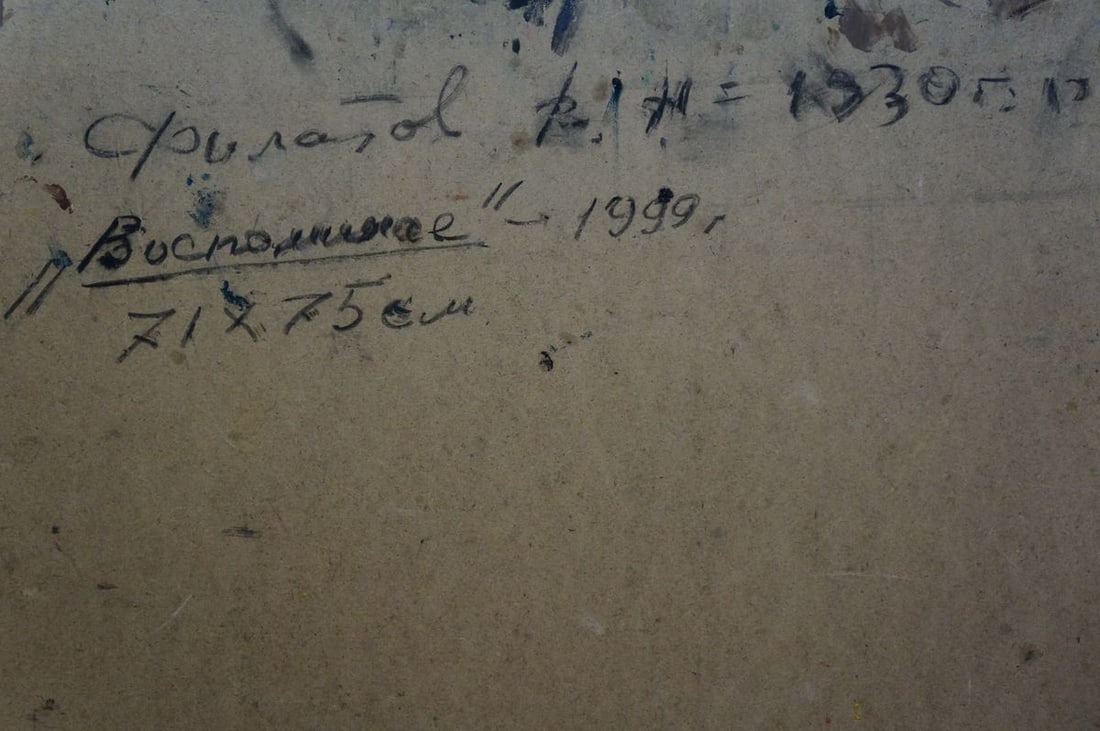 Филатов В. Н = 1930 г. р
"Воспоминае" - 1999 г
71 x 75 см